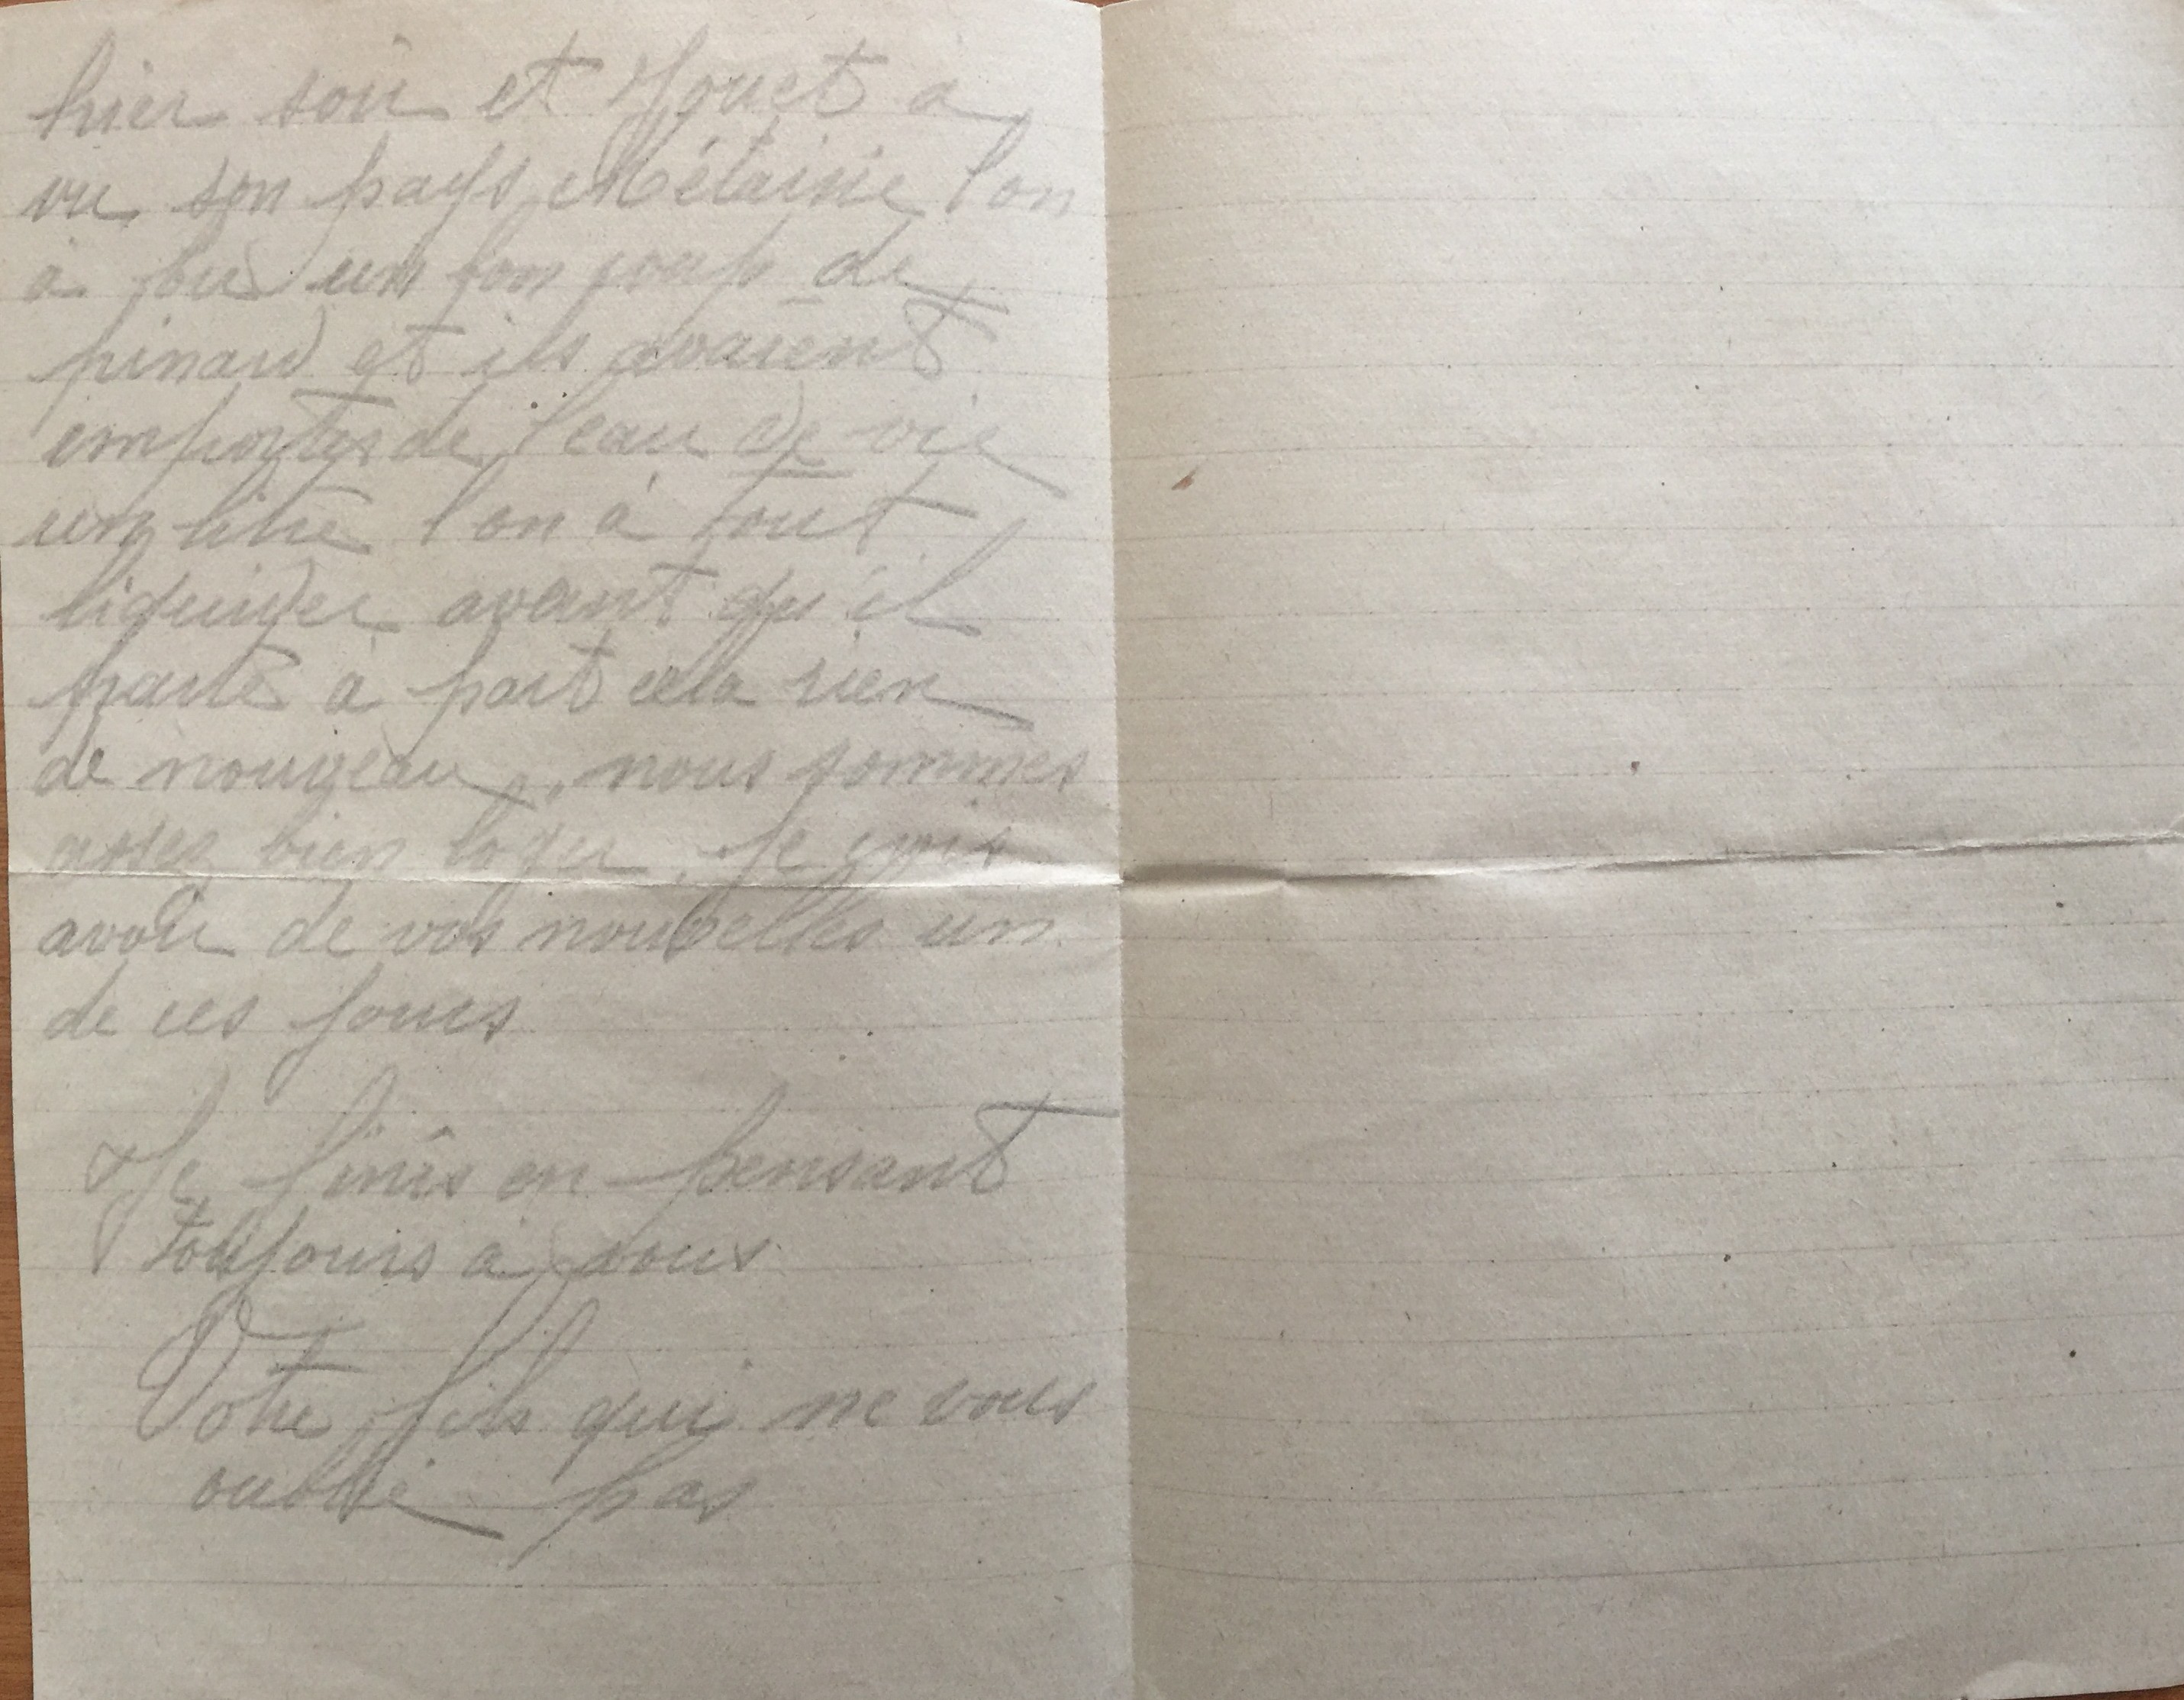 hier soir et Jouet a
vu son pays Métairie l'on
à bu un bon coup de
pinard et ils avaient
emportés de l'eau de vie
un litre l'on à tout
liquider avant qu'il
parte à part cela rien
de nouveau, nous sommes
assez bien loger. Je crois
avoir de vos nouvelles un
de ces jours
Je finis en pensant
toujours à vous
Votre fils qui ne vous
oublie pas